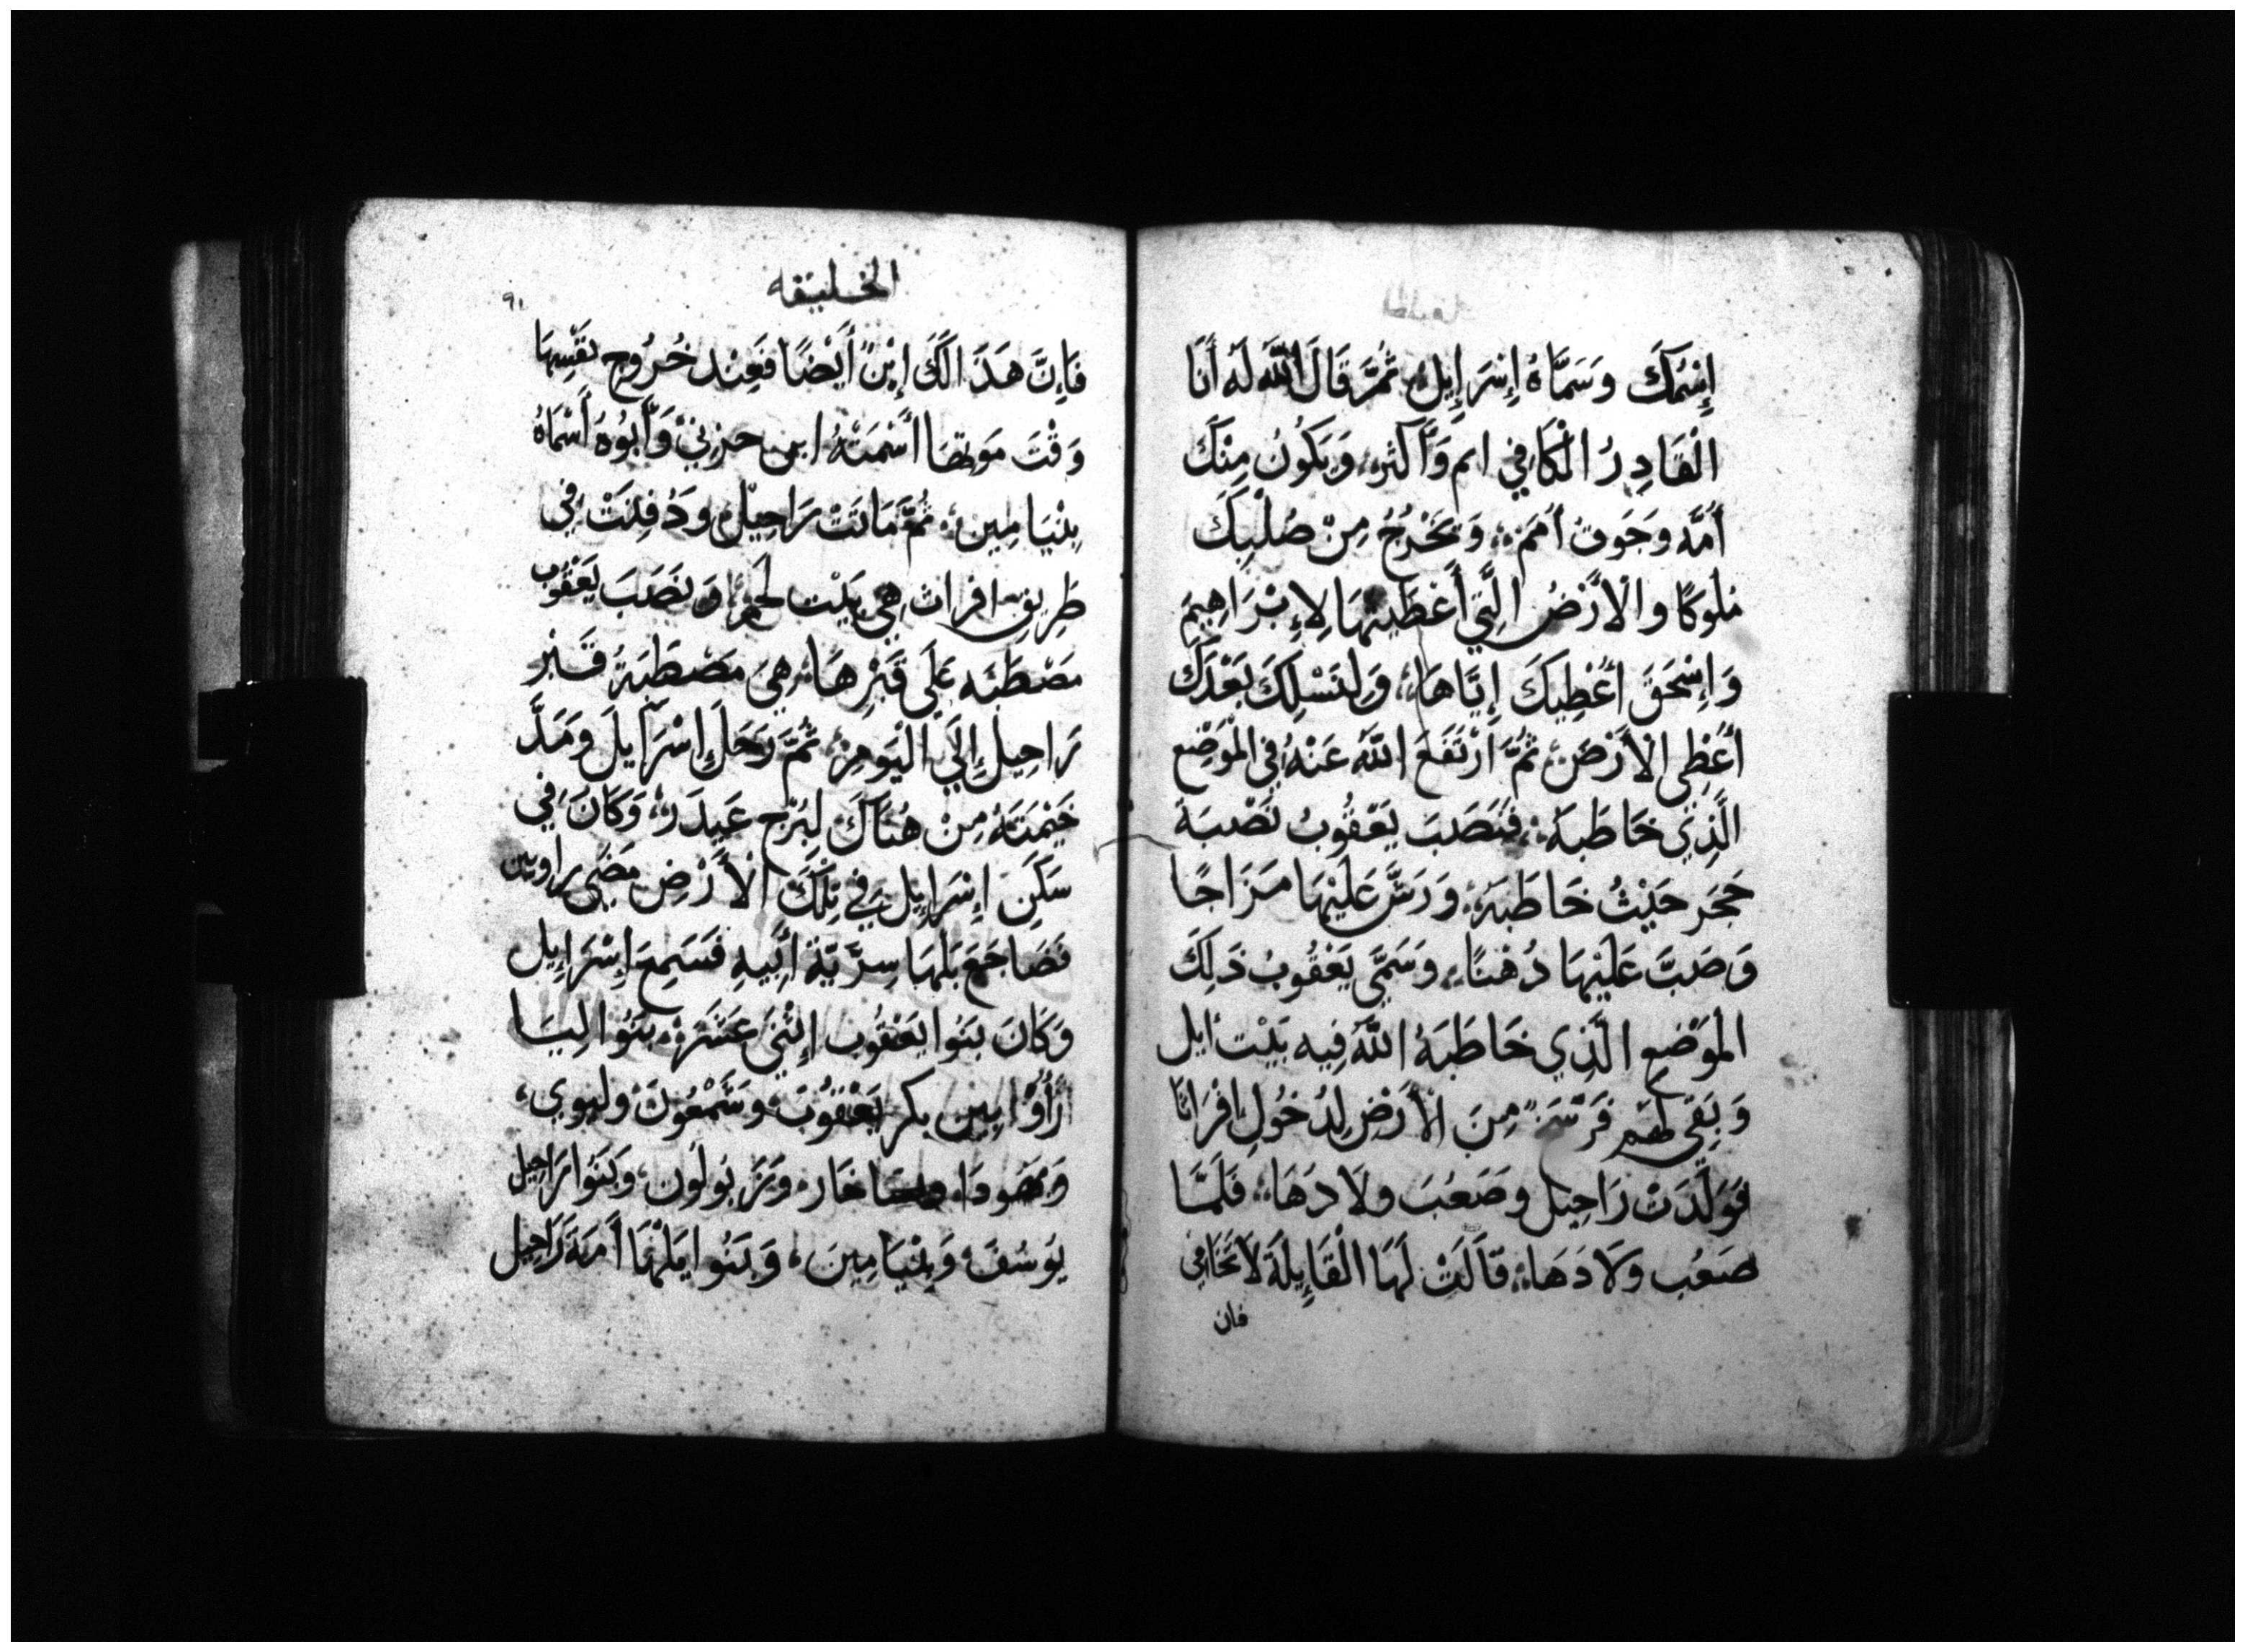 إِسْمُكَ وَسَمَّاهُ إِسْرَإِيِلُ ثُمَّ قَالَ اللَّهُ لَهُ أَنَا
الْقَادِرُ الْكَافِي انم وَأَكثر وَيَكُونُ مِنْكَ
أُمَّه وَجَوقُ أُمَمٍ وَتَخْرُجُ مِنْ صُلْبِكَ
مُلُوكًا وَالْأَرْضُ الَّتِي أَعْطَيْتُهَا لِإِبْرَاهِيمَ
وَإِسْحَقَ أُعْطِيكَ إِيَّاهَا وَلِنَسْلِكَ بَعْدَكَ
أُعْطِى الْأَرْضَ ثُمَّ ارْتَفَعَ اللَّهُ عَنْهُ فِي الْمَوْضِعِ
الَّذِي خَاطَبَهُ فَنَصَبَ يَعْقُوبُ نَصْبَةَ
حَجَرٍ حَيْثُ خَاطَبَهُ وَرَشَّ عَلَيْهَا مَزَاجًا
وَصَبَّ عَلَيْهَا دُهْنًا وَسَمَّى يَعْقُوبُ ذَلِكَ
الْمَوْضِعِ الَّذِي خَاطَبَهُ اللَّهُ فِيهِ بَيْت ايل
وَبَقِي لَهُم فَرْسَخٌ مِنَ الْأَرْضِ لِدُخُولِ افْرَاتَا
فَوَلَّدَتْ رَاحِيل وَصَعُبَ ولَادَهَا فَلَمَّا
صَعُب وَلَادَهَا قَالَتْ لَهَا الْقَابِلَةُ لَا تَخَافِي
فان
الخليقه
٩١
فَإِنَّ هَذَا لَكِ إِبْنٌ أَيْضًا فَعِنْد خُرُوجِ نَفْسِهَا
وَقْتَ مَوتِهَا أَسْمَتْهُ ابن حزني وَأَبُوهُ أَسْمَاهُ
بِنْيَامِين ثُمَّ مَاتَتْ رَاحِيلُ وَدُفِنَتْ فِي
طَرِيقِ افراث هِيَ بَيْت لَحْمٍ وَنَصَبَ يَعْقُوب
مَصْطَبَه عَلَى قَبْرِهَا هِيَ مَصْطَبَةُ قَبْر
رَاحِيل إِلَي الْيَومِ ثُمَّ رَحَلَ إِسْرَايِلَ وَمَدَّ
خَيْمَتَهُ مِنْ هُنَاكَ لِبُرْج عَيدَر وَكَانَ فِي
سَكَنِ إِسْرَإِيِل فِي تِلْكَ الْأَرْضِ مَضَي راوبين
فَضَاجَعَ بَلْهَا سِرِّيَّة أَبِيهِ فَسَمِعَ إِسْرَإِيل
وَكَانَ بَنُوا يَعْقُوب إِثْنَي عَشَرَ بَنُوا لِيَا
رَأُوْابِين بكر يَعْقُوبَ وَشَمْعُونَ وليوي
وَيَهودَا ويساخار وَزَبُولُون وَبَنُوا رَاحِيل
يُوسُفَ وَبِنْيَامِينَ وَبَنُوا بَلْهَا أَمَةَ رَاحِيل